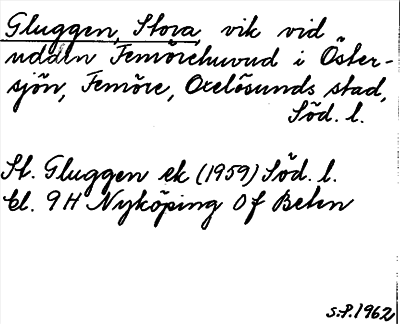 Gluggen, Stora, vik vid
udden Femörehuvud i Öster-
sjön, Femöre, Oxelösunds stad,
Söd. l.
St. Gluggen ek (1959) Söd. l.
bl. 9H Nyköping Of Beten
S.P. 1962